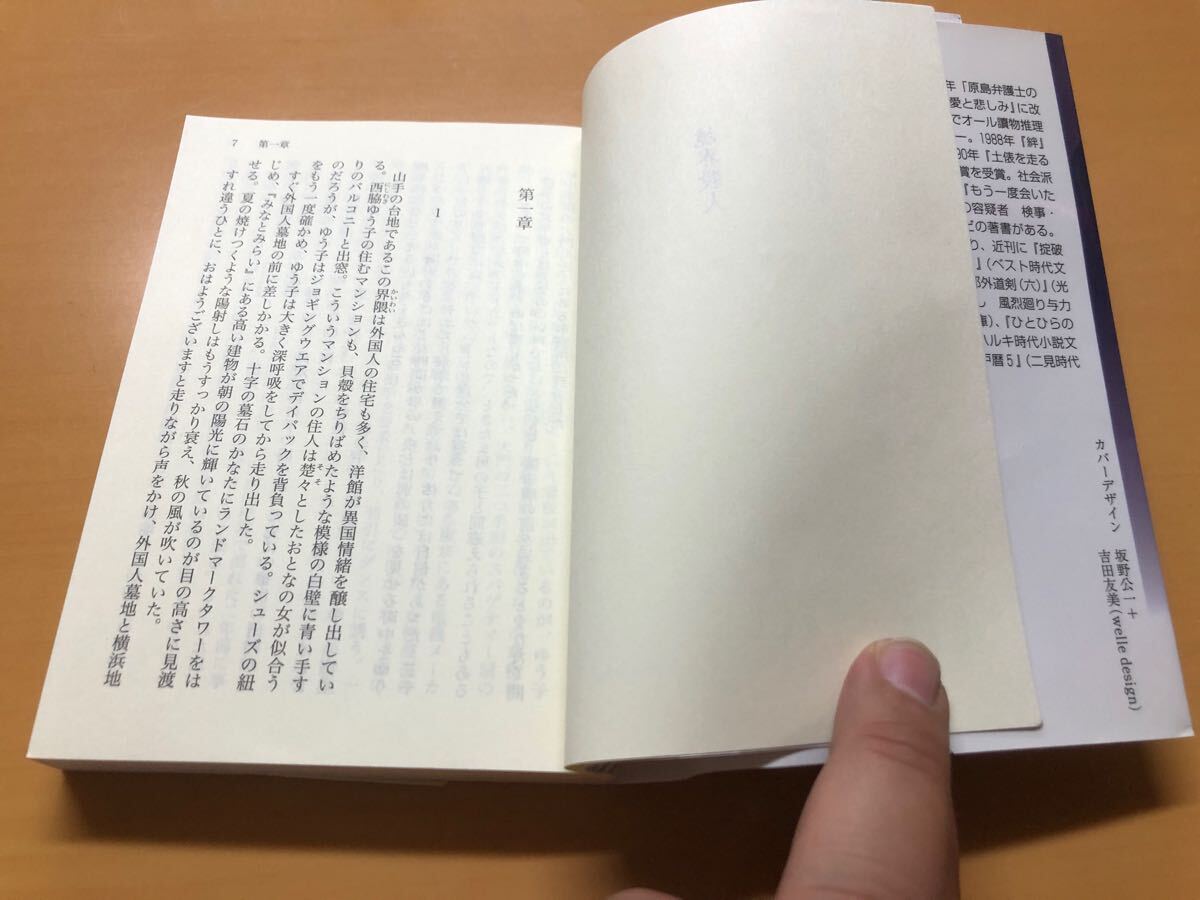 年『原島弁護士の
愛と悲しみ』に改
でオール讀物推理
ー。1988年『絆』
90年『土俵を走る
賞を受賞。社会派
『もう一度会いた
の容疑者　検事・
どの著書がある。
り、近刊に『掟破
』(ベスト時代文
郎外道剣(六)』(光
し　風烈廻り与力
庫)、『ひとひらの
ハルキ時代小説文
戸暦5』(二見時代
カバーデザイン　坂野公一+
吉田友美(welle design)
7　第一章
第一章
1
　山手の台地であるこの界隈は外国人の住宅も多く、洋館が異国情緒を醸し出してい
る。西脇ゆう子の住むマンションも、貝殻をちりばめたような模様の白壁に青い手す
りのバルコニーと出窓。こういうマンションの住人は楚々としたおとなの女が似合う
のだろうが、ゆう子はジョギングウエアでデイパックを背負っている。シューズの紐
をもう一度確かめ、ゆう子は大きく深呼吸をしてから走り出した。
　すぐ外国人墓地の前に差しかかる。十字の墓石のかなたにランドマークタワーをは
じめ、『みなとみらい』にある高い建物が朝の陽光に輝いているのが目の高さに見渡
せる。夏の焼けつくような陽射しはもうすっかり衰え、秋の風が吹いていた。
　すれ違うひとに、おはようございますと走りながら声をかけ、外国人墓地と横浜地